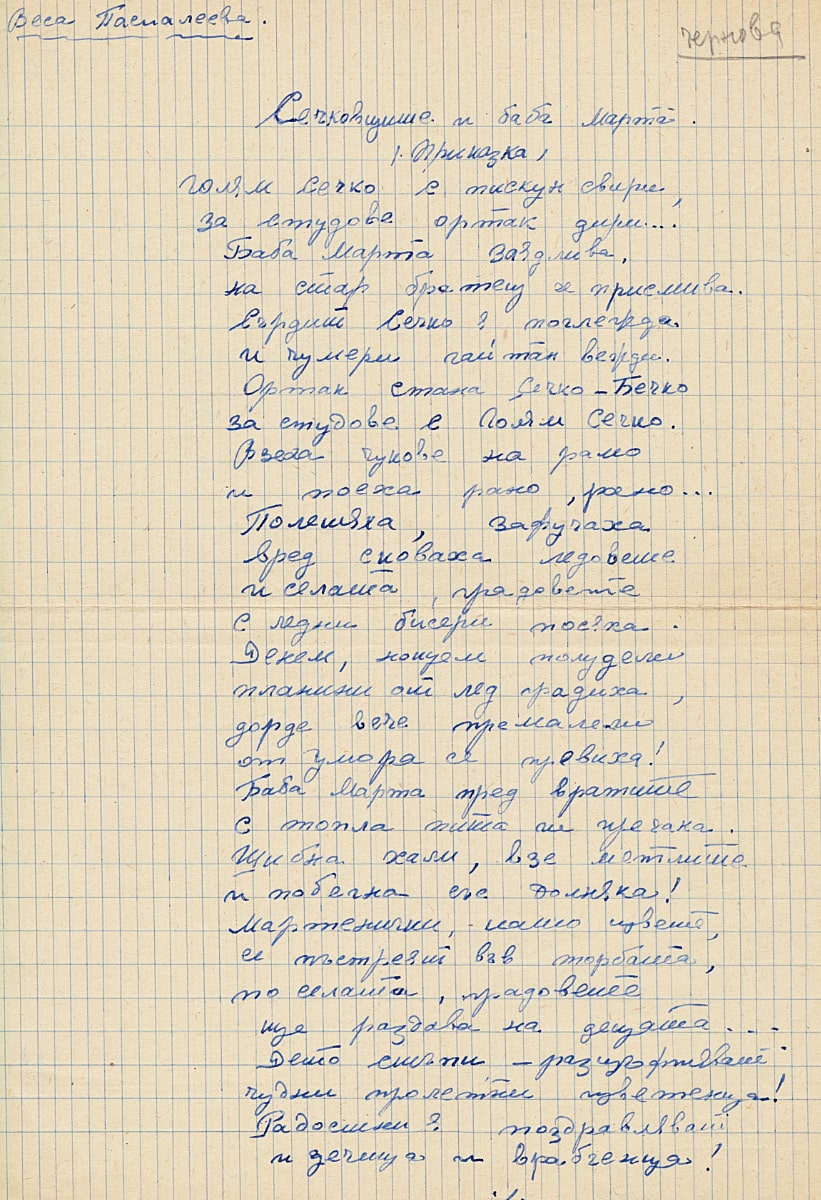 Веса Паспалеева.
чернова
Сечковците и баба Марта.
/Приказка/
Голям Сечко с пискун свири,
за студове ортак дири...
Баба Марта заядлива,
на стар братец се присмива.
Сърдит Сечко я поглежда
и чумери гайтан вежди.
Ортак стана Сечко-Бечко
за студове с Голям Сечко.
Взеха чукове на рамо
и поеха рано, рано...
Полетяха, зафучаха
вред сковаха ледовете
и селата, градовете
с ледни бисери посяха.
Денем, нощем полудели
планини от лед градиха,
дорде вече премалели
от умора се превиха!
Баба Марта пред вратите
с топла пита ги чечака.
Шибна хали, взе метлите
и побегна със Долняка!
Мартенички, - цвете,
се пъстреят във торбата,
по селата, градовете
ще раздава на децата...
Дето стъпи - разцъфтяват
чудни пролетни цветенца!
Радостни я поздравляват
и зайчица и врабченца!
./.